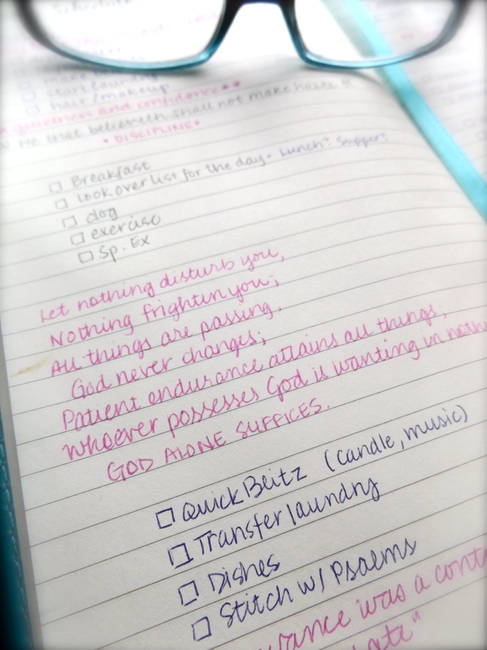 Schedule
make
start laundry
hair/makeup
quietness and confidence**
He that believeth shall not make haste
*DISCIPLINE*
☐ Breakfast
☐ look over list for the day - Lunch? Supper?
☐ dog
☐ exercise
☐ Sp. Ex
Let nothing disturb you,
Nothing frighten you;
All things are passing.
God never changes;
Patient endurance attains all things;
Whoever possesses God is wanting in noth
GOD ALONE SUFFICES.
☐ Quick Blitz (candle, music)
☐ Transfer laundry
☐ Dishes
☐ Stitch w/ Psalms
was a cont